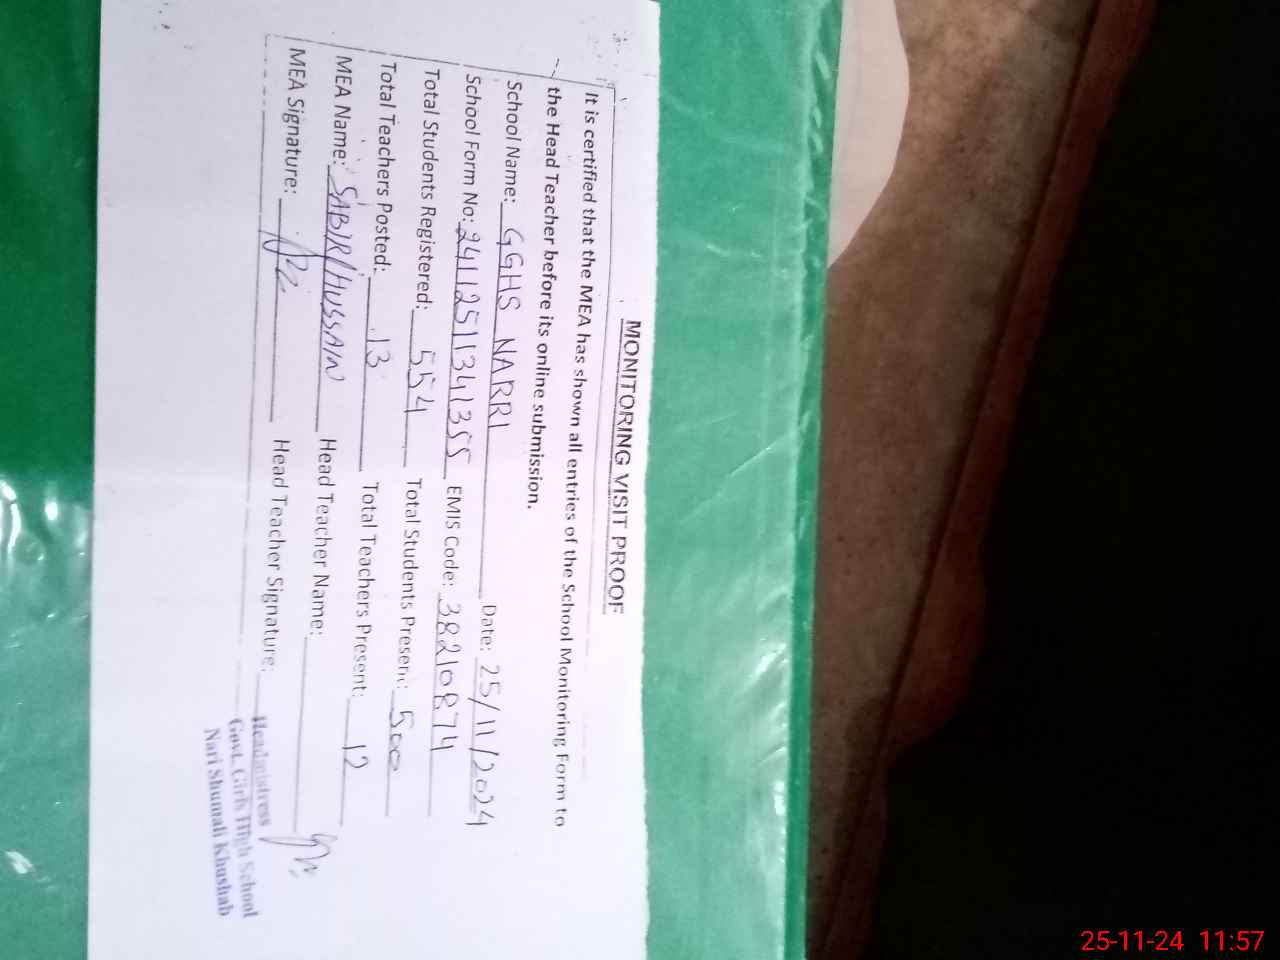 MONITORING VISIT PROOF
It is certified that the MEA has shown all entries of the School Monitoring Form to
the Head Teacher before its online submission.
School Name: GGHS NARRI Date: 25/11/2024
School Form No: 24112511341355 EMIS Code: 38210874
Total Students Registered: 554 Total Students Present: 500
Total Teachers Posted: 13 Total Teachers Present: 12
MEA Name: SABIR HUSSAIN Head Teacher Name:
MEA Signature: Head Teacher Signature:
Headmistress
Govt. Girls High School
Nari Shumali Khushab
25-11-24 11:57